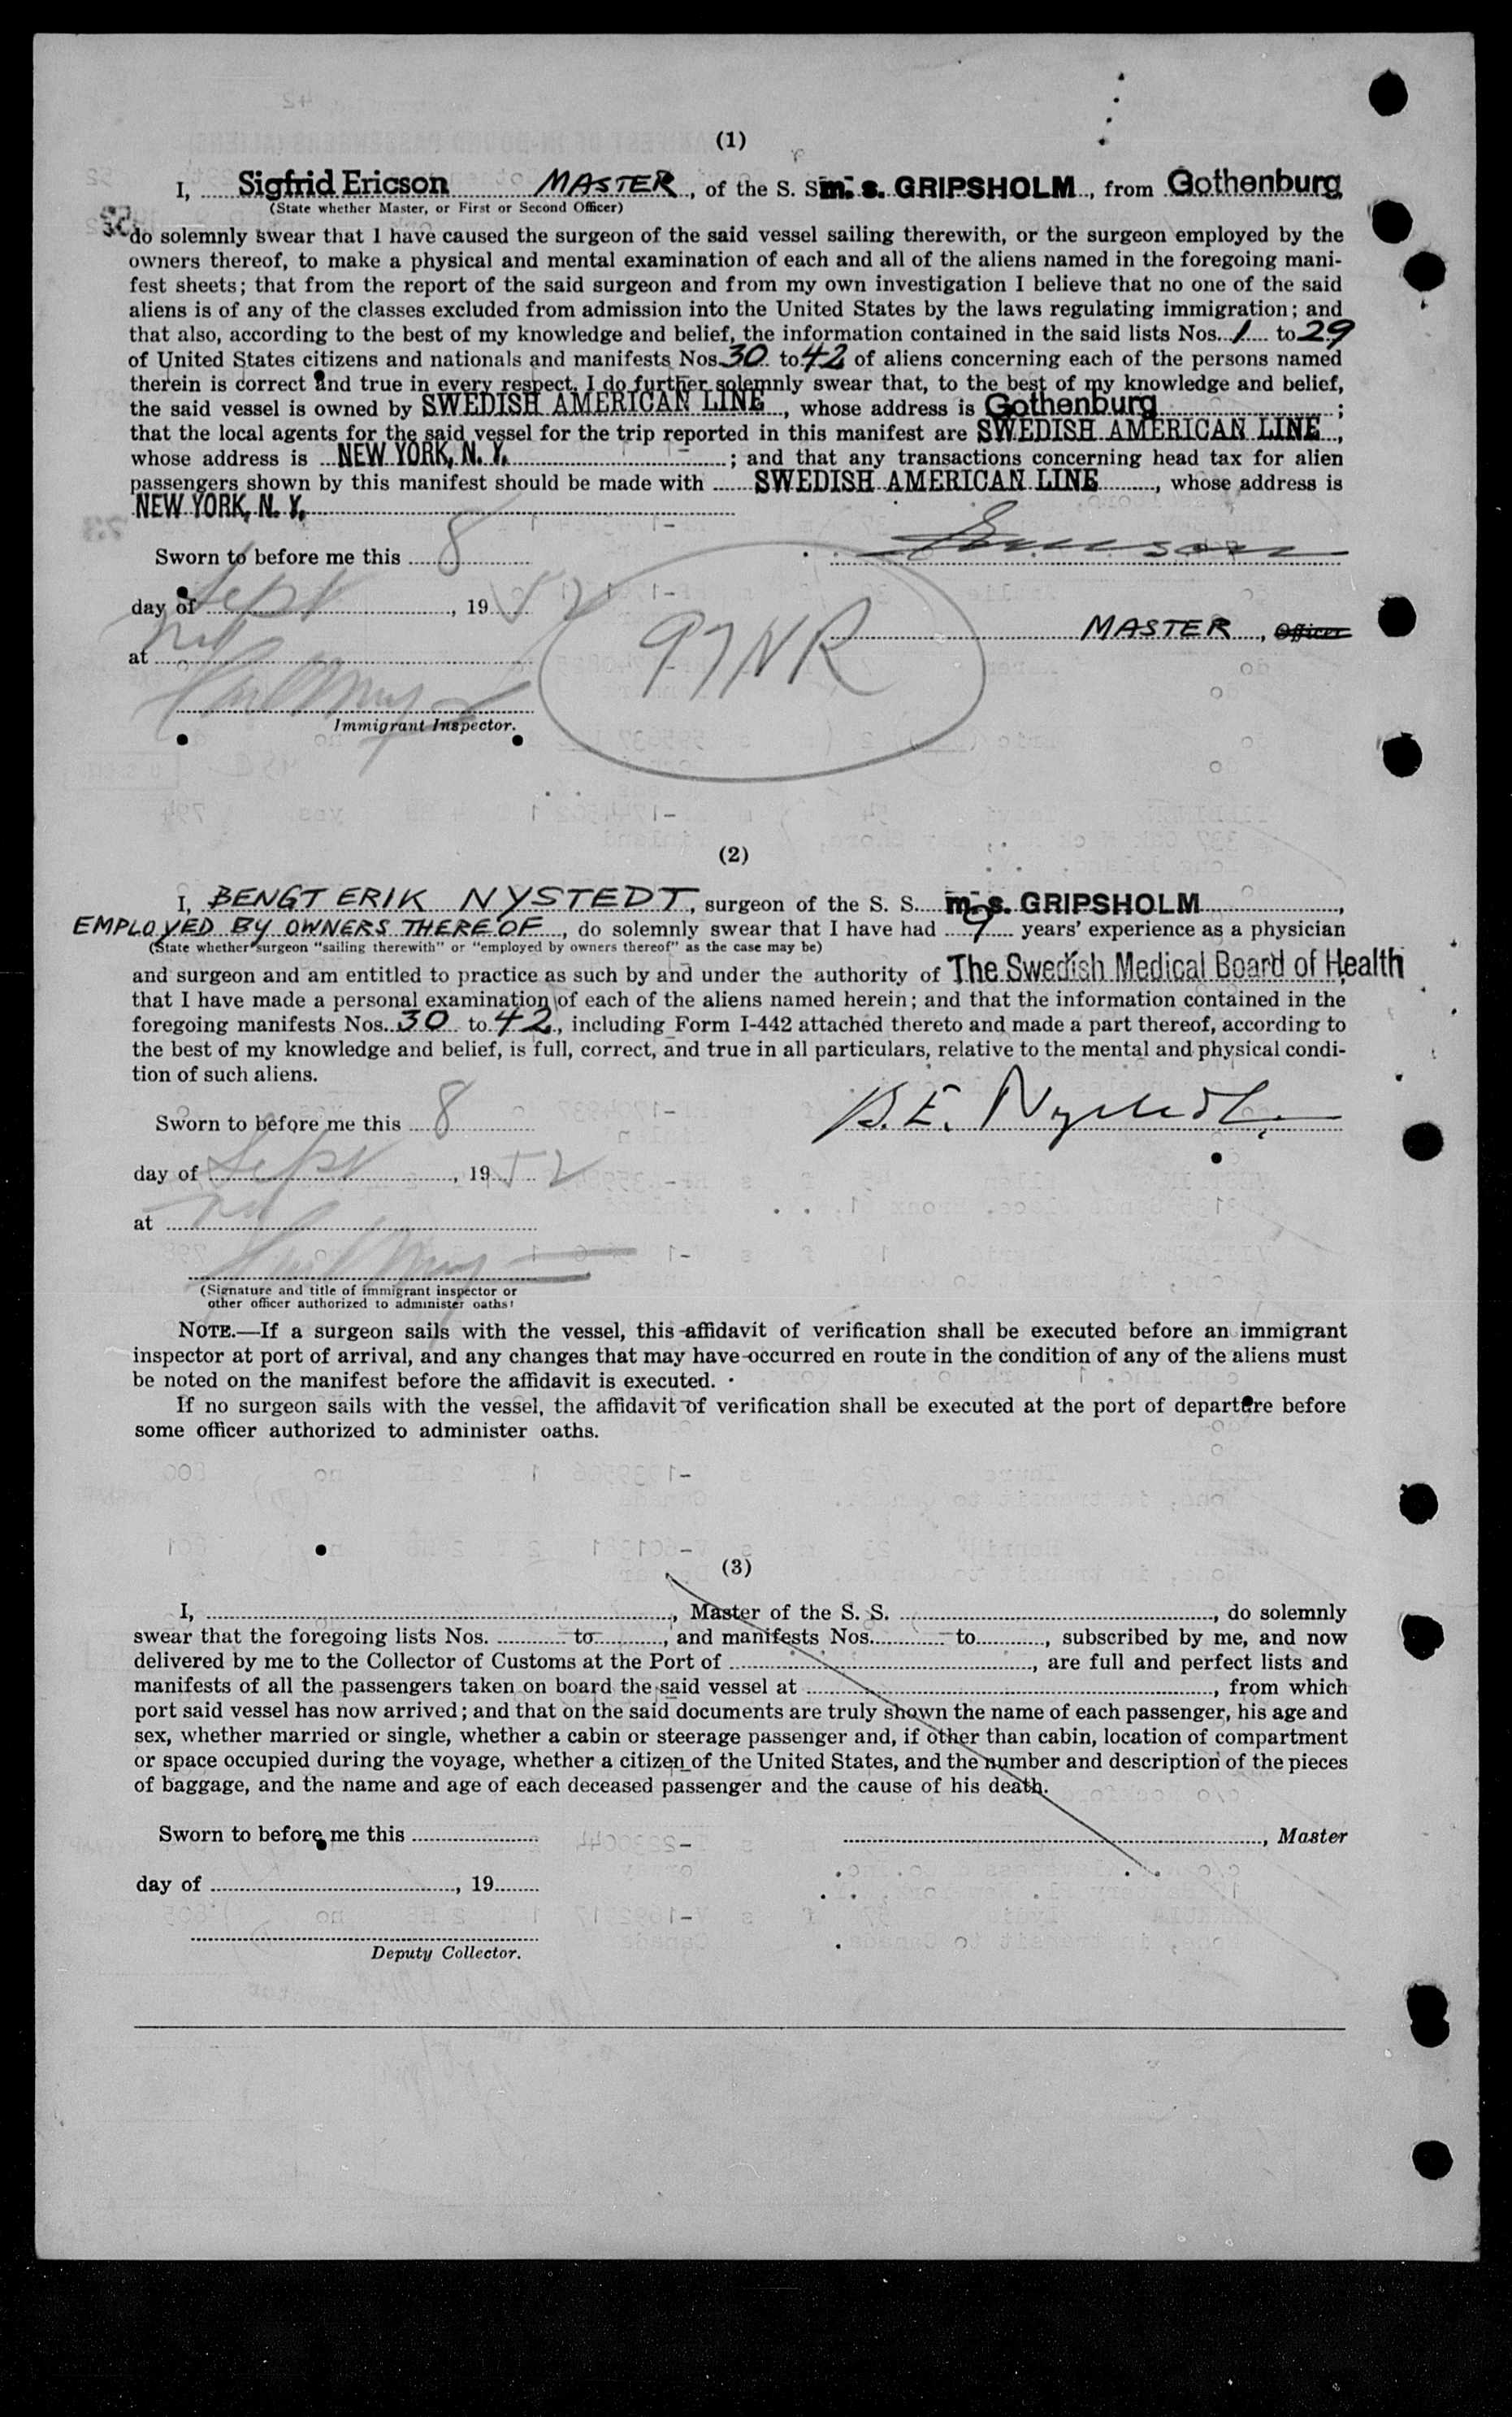 (1)
I, Sigfrid Ericson MASTER, of the S. S. m. s. GRIPSHOLM, from Gothenburg
(State whether Master, or First or Second Officer)
do solemnly swear that I have caused the surgeon of the said vessel sailing therewith, or the surgeon employed by the
owners thereof, to make a physical and mental examination of each and all of the aliens named in the foregoing mani-
fest sheets; that from the report of the said surgeon and from my own investigation I believe that no one of the said
aliens is of any of the classes excluded from admission into the United States by the laws regulating immigration; and
that also, according to the best of my knowledge and belief, the information contained in the said lists Nos. 1 to 29
of United States citizens and nationals and manifests Nos. 30 to 42 of aliens concerning each of the persons named
therein is correct and true in every respect. I do further solemnly swear that, to the best of my knowledge and belief,
the said vessel is owned by SWEDISH AMERICAN LINE, whose address is Gothenburg ;
that the local agents for the said vessel for the trip reported in this manifest are SWEDISH AMERICAN LINE,
whose address is NEW YORK, N. Y. ; and that any transactions concerning head tax for alien
passengers shown by this manifest should be made with SWEDISH AMERICAN LINE, whose address is
NEW YORK, N. Y.
Sworn to before me this 8
Ericson
day of Sept, 1952
97NR
MASTER, Officer
at
Immigrant Inspector.
(2)
I, BENGT ERIK NYSTEDT, surgeon of the S. S. m. s. GRIPSHOLM,
EMPLOYED BY OWNERS THEREOF, do solemnly swear that I have had 9 years' experience as a physician
(State whether surgeon "sailing therewith" or "employed by owners thereof" as the case may be)
and surgeon and am entitled to practice as such by and under the authority of The Swedish Medical Board of Health
that I have made a personal examination of each of the aliens named herein; and that the information contained in the
foregoing manifests Nos. 30 to 42, including Form I-442 attached thereto and made a part thereof, according to
the best of my knowledge and belief, is full, correct, and true in all particulars, relative to the mental and physical condi-
tion of such aliens.
Sworn to before me this 8
B. E. Nystedt
day of Sept, 1952
at
(Signature and title of immigrant inspector or
other officer authorized to administer oaths)
NOTE.—If a surgeon sails with the vessel, this affidavit of verification shall be executed before an immigrant
inspector at port of arrival, and any changes that may have occurred en route in the condition of any of the aliens must
be noted on the manifest before the affidavit is executed.
If no surgeon sails with the vessel, the affidavit of verification shall be executed at the port of departure before
some officer authorized to administer oaths.
(3)
I, , Master of the S. S. , do solemnly
swear that the foregoing lists Nos. to , and manifests Nos. to , subscribed by me, and now
delivered by me to the Collector of Customs at the Port of , are full and perfect lists and
manifests of all the passengers taken on board the said vessel at , from which
port said vessel has now arrived; and that on the said documents are truly shown the name of each passenger, his age and
sex, whether married or single, whether a cabin or steerage passenger and, if other than cabin, location of compartment
or space occupied during the voyage, whether a citizen of the United States, and the number and description of the pieces
of baggage, and the name and age of each deceased passenger and the cause of his death.
Sworn to before me this
, Master
day of , 19
Deputy Collector.